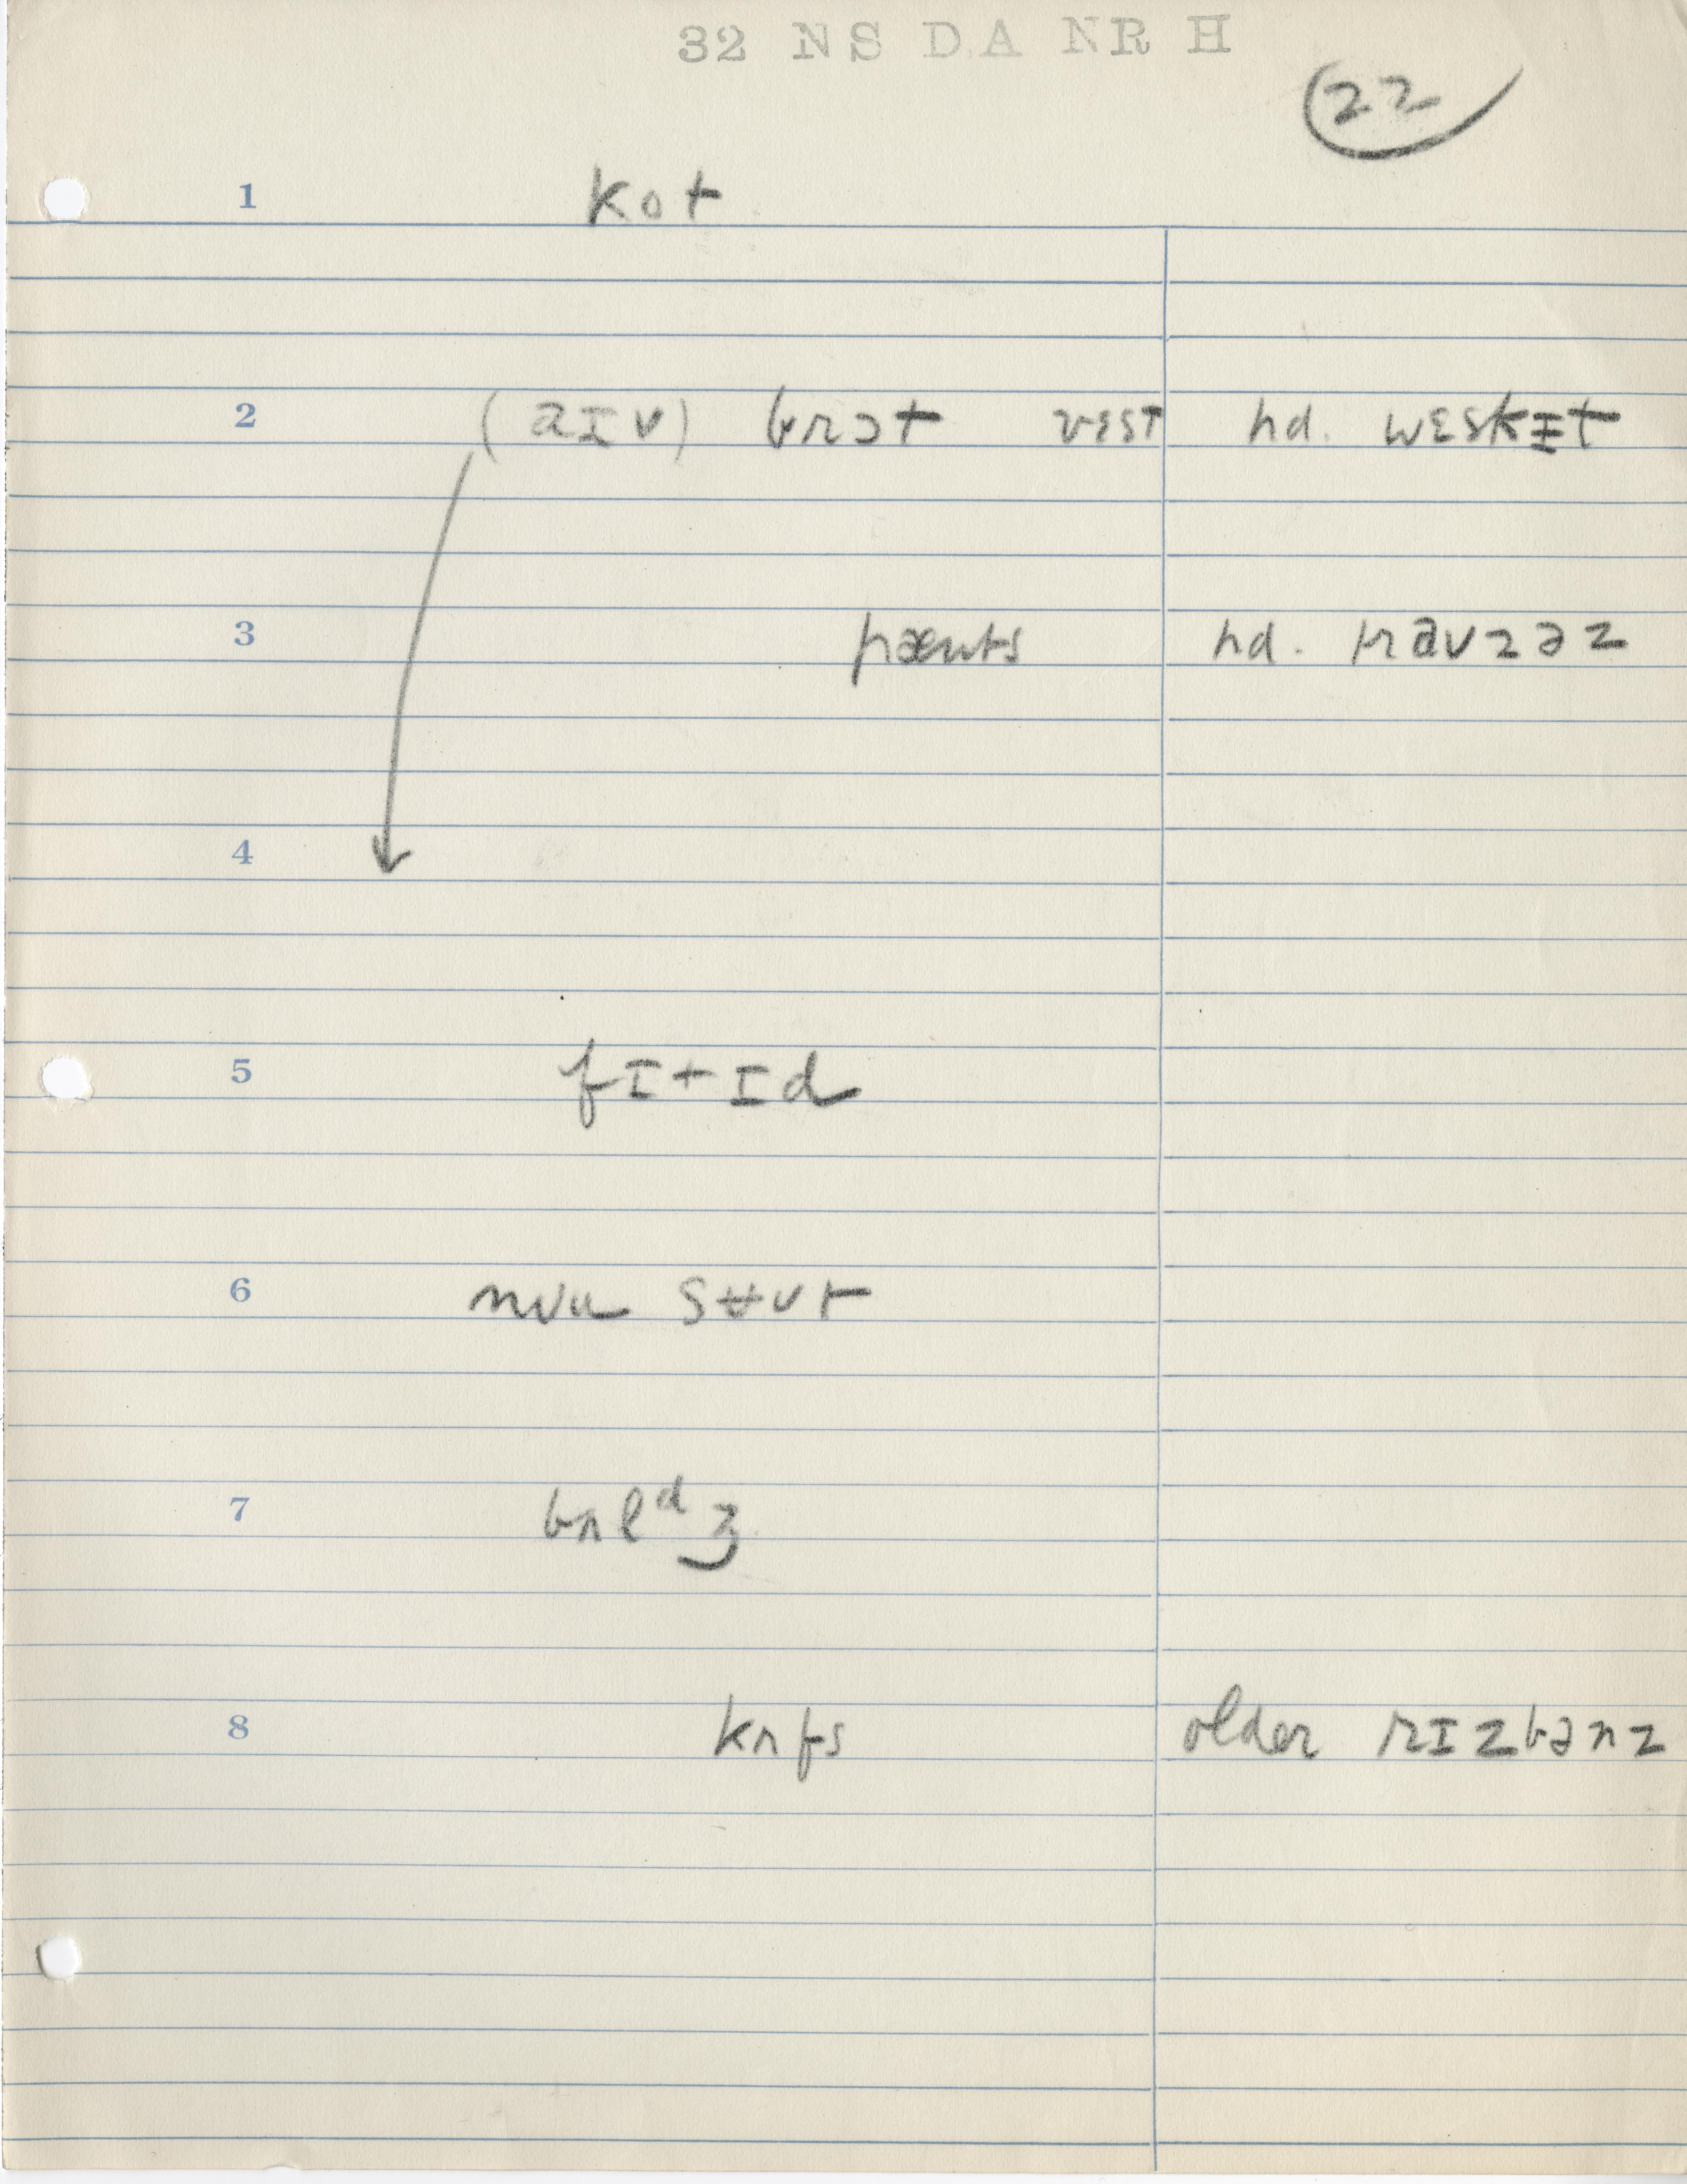 32 NS DA NR H
22
1 kot
2 (aɪv) brɔt vɛst hd. wɛskɪt
3 pænts hd.
4
5 fɪtɪd
6 sʉut
7 bʌlᵈʒ
8 kʌfs older rɪzbənz